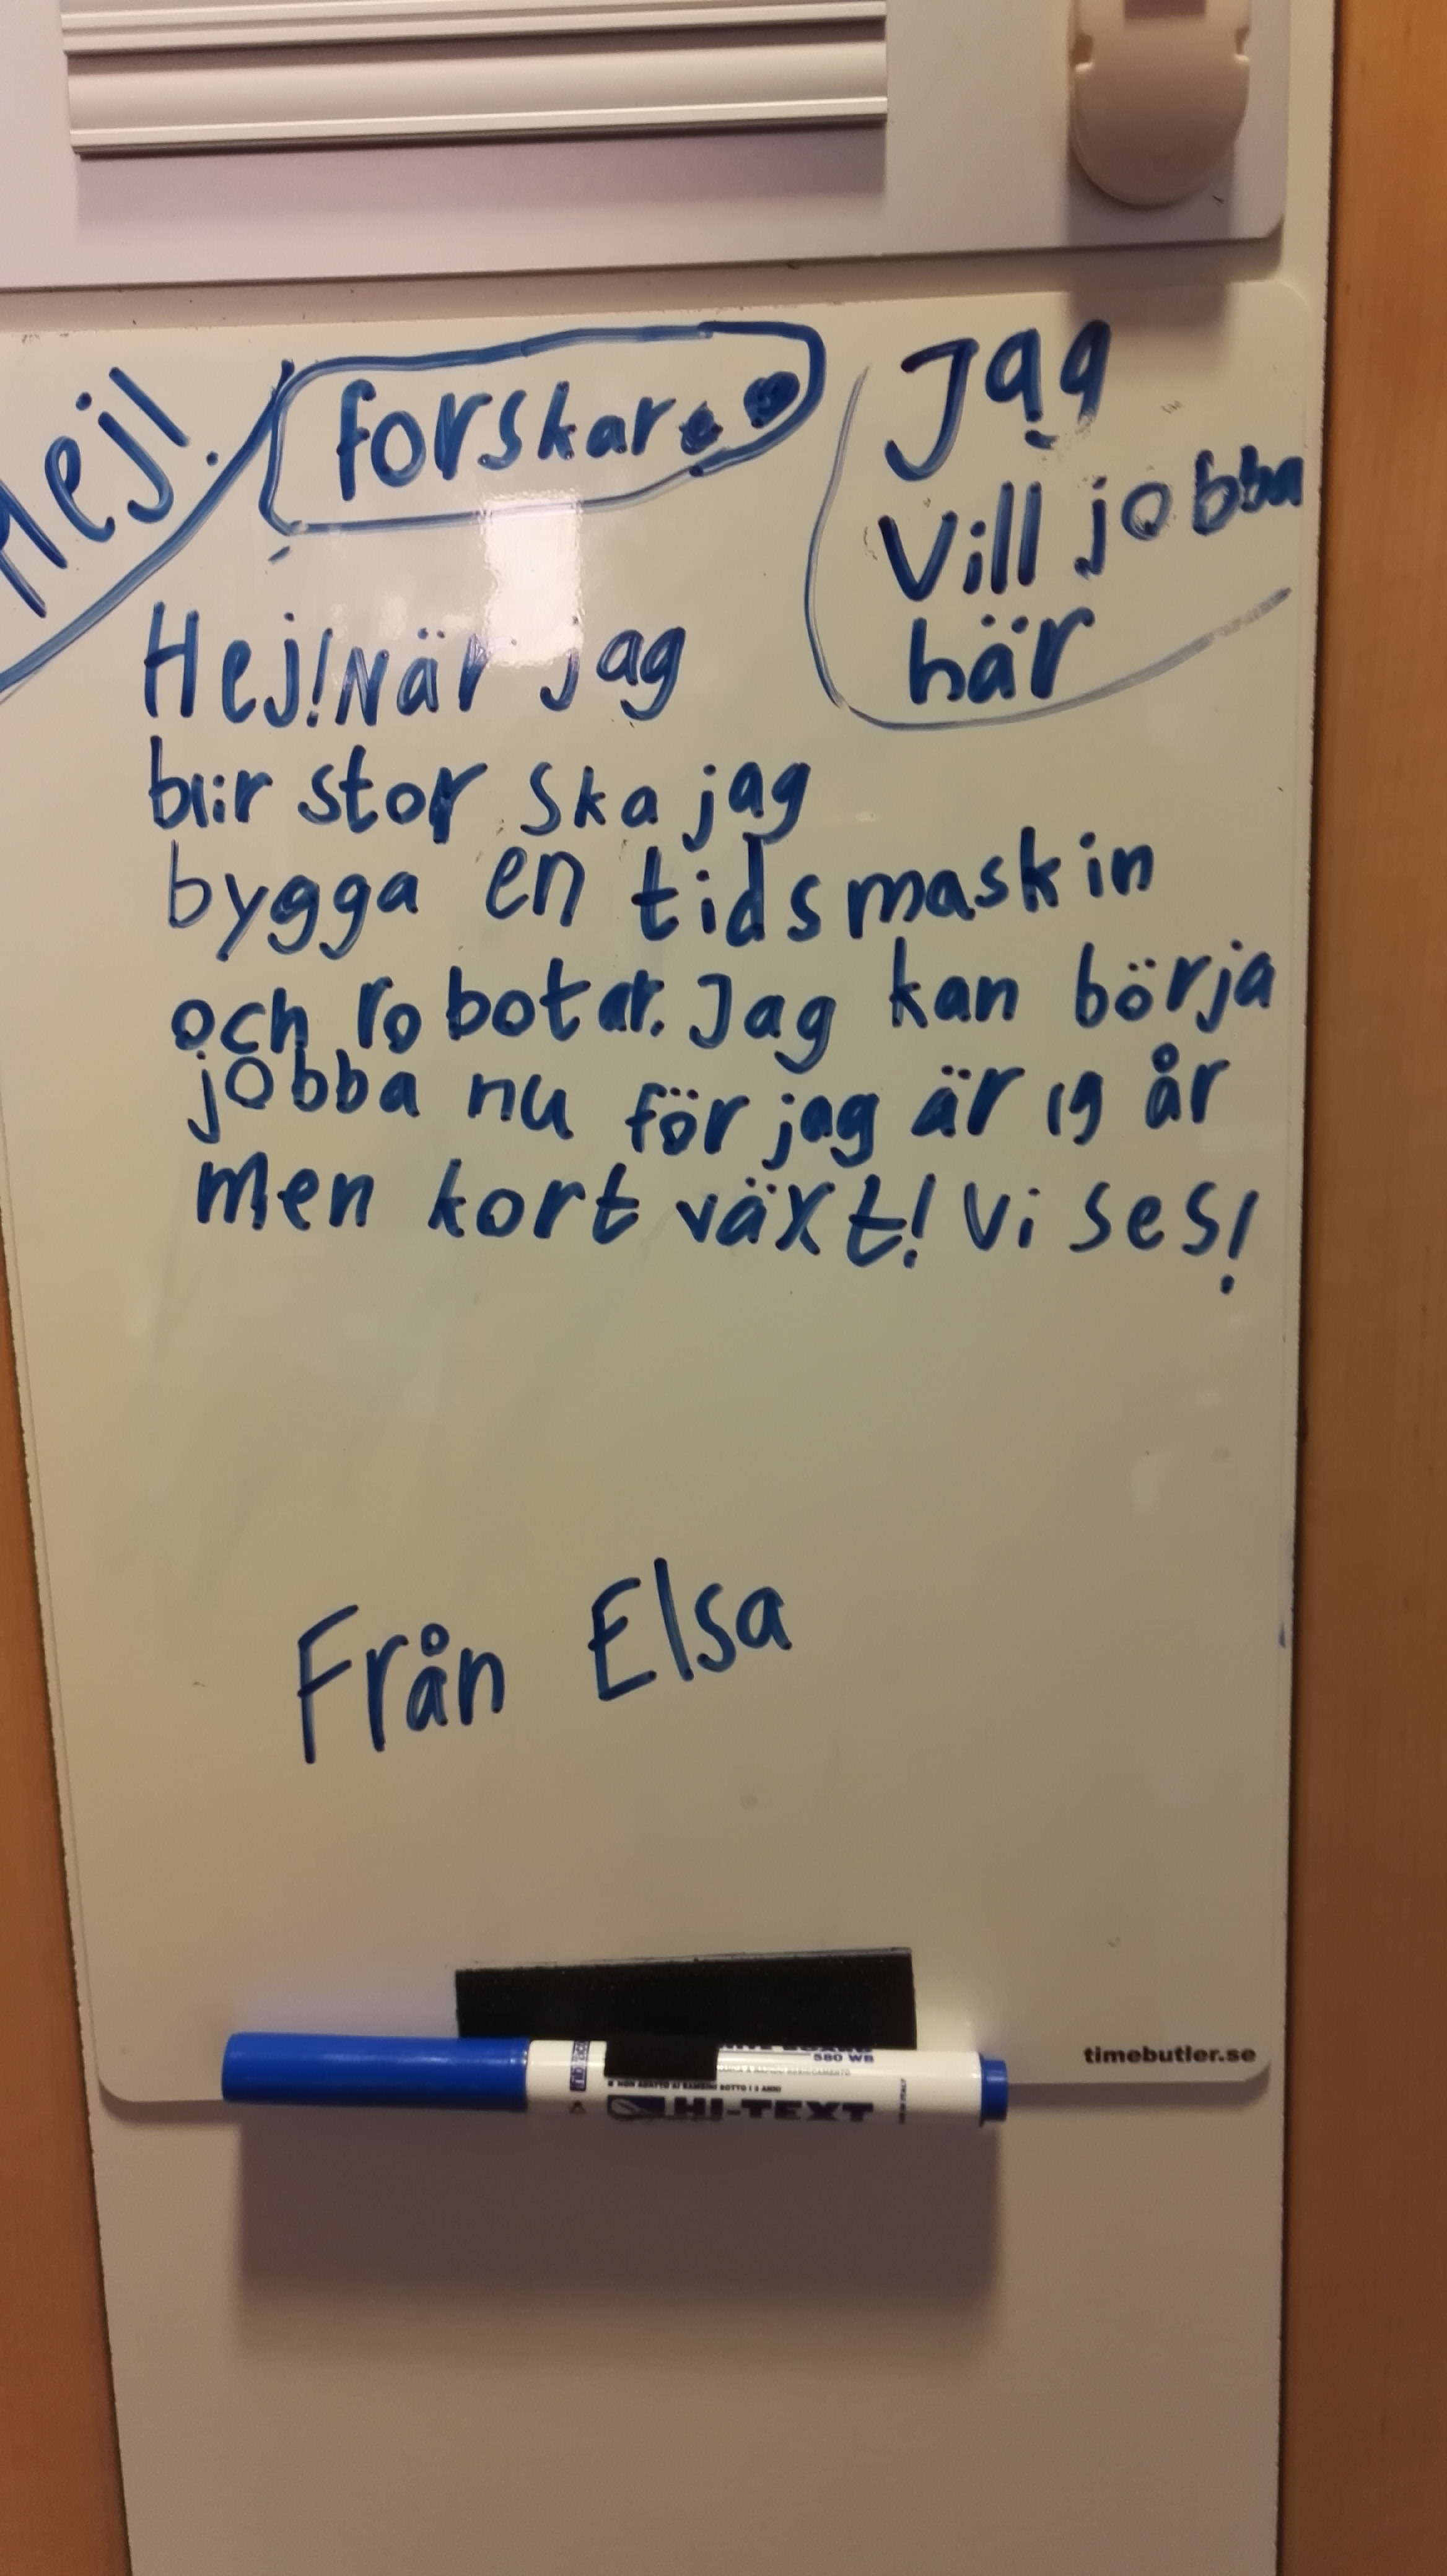 Hej!
forskare
Jag
vill jobba
här
Hej! När jag
blir stor ska jag
bygga en tidsmaskin
och robotar. Jag kan börja
jobba nu för jag är 19 år
men kort växt! Vi ses!
Från Elsa
580 WB
HI-TEXT
timebutler.se